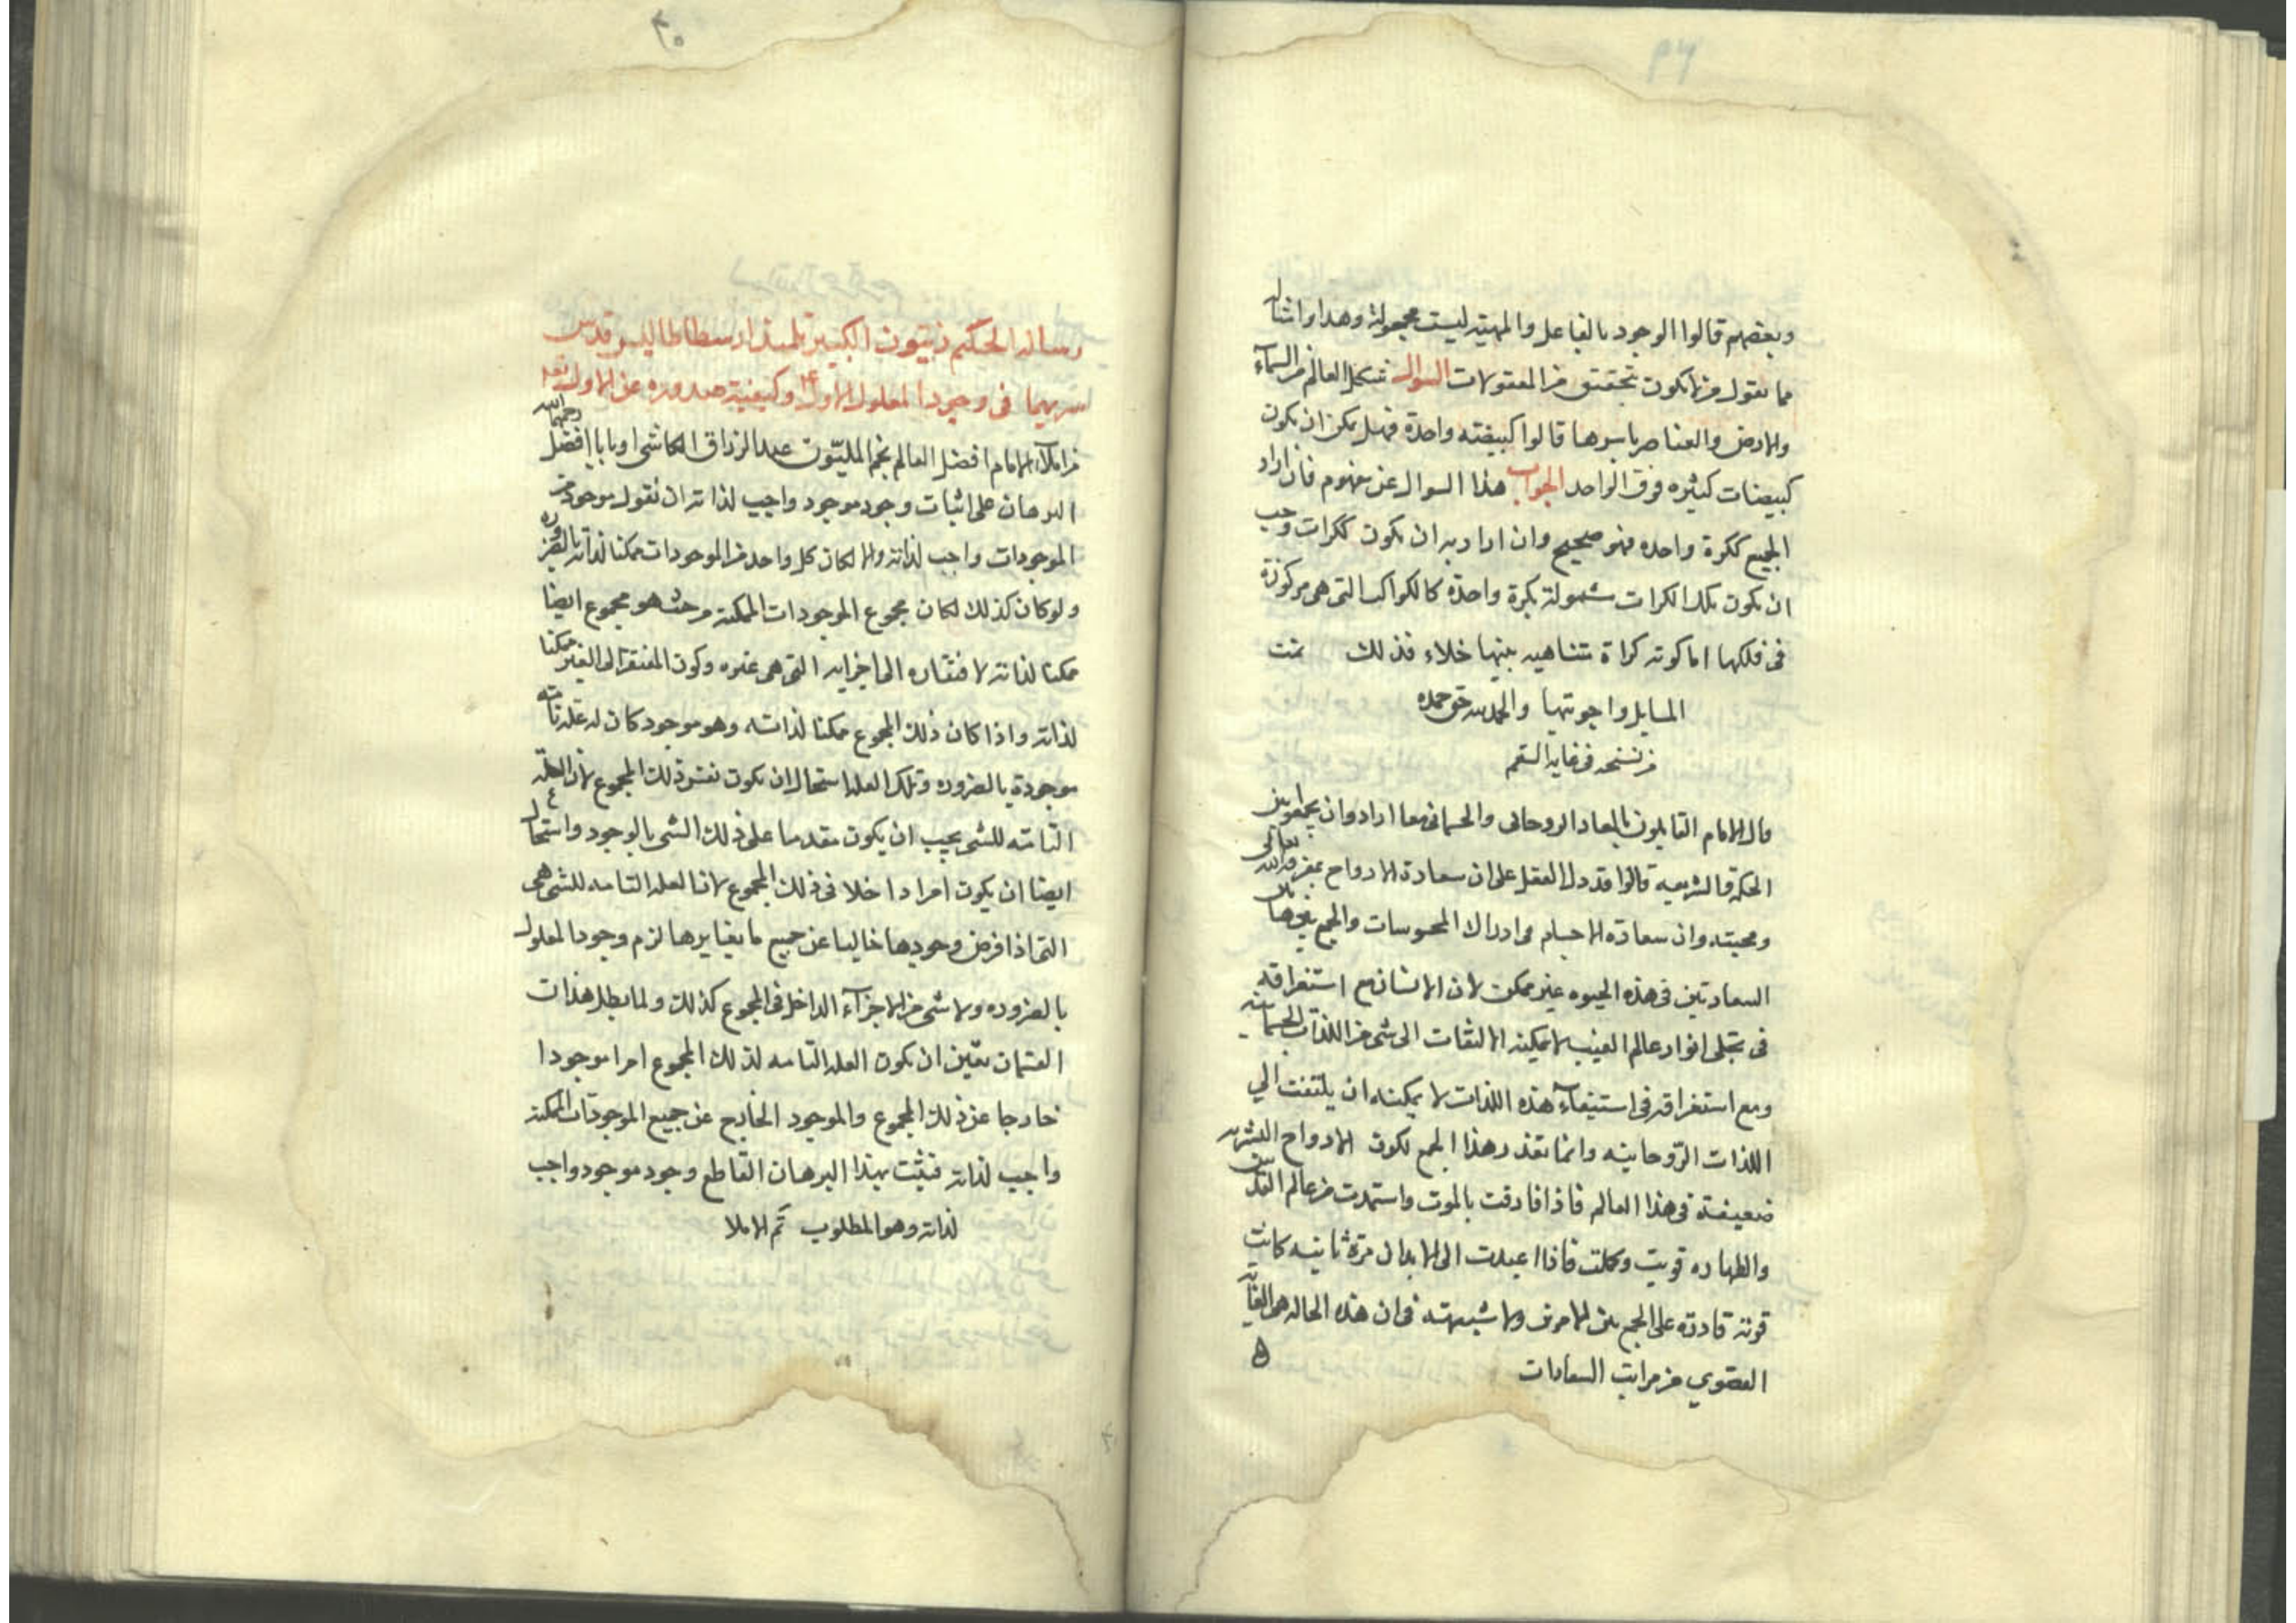 وبعضهم قالوا الوجود بالفاعل والمهية ليست مجعولة وهذا وامثاله
مما نقول من ان يكون تحقيق من المعقولات السوال شكل العالم من السماء
والارض والعناصر باسرها قالوا كبيضه واحدة فهل يمكن ان يكون
كبيضات كثيره فوق الواحد الجواب هذا السوال غير مفهوم فان اراد
الجميع ككرة واحده فهو صحيح وان اراد به ان يكون ككرات وجب
ان يكون تلك الكرات مشمولة بكرة واحدة كالكواكب التى هى مركوزة
فى فلكها اما كونه كراة متناهيه بينها خلاء فذلك تمت
المسايل واجوبتها والحمد لله حق حمده
من نسخه فى غايه السقم
قال الامام القايلون بالمعاد الروحانى والجسمانى معا ارادوا ان يجمعوا بين
الحكمة والشريعه قالوا قد دل العقل على ان سعادة الارواح بمعرفة الله تعالى
ومحبته وان سعادة الاجسام فى ادراك المحسوسات والجمع بين هاتين
السعادتين فى هذه الحيوه غير ممكن لان الانسان مع استغراقه
فى تجلى انوار عالم الغيب لا يمكنه الالتفات الى شى من اللذات الجسمانيه
ومع استغراقه فى استيفآء هذه اللذات لا يمكنه ان يلتفت الي
اللذات الروحانيه وانما تعذر هذا الجمع لكون الارواح البشريه
ضعيفة فى هذا العالم فاذا فارقت بالموت واستمدت من عالم القدس
والطهاره قويت وكملت فاذا اعيدت الى الابدان مرة ثانيه كانت
قوية قادرة على الجمع بين الامرين ولا شبهة فى ان هذه الحاله هى الغاية
القصوي من مراتب السعادات
٢٥
رساله الحكيم زينون الكبير تلميذ ارسطاطاليس قدس
سريهما فى وجود المعلول الاول وكيفية صدوره عن الاول تعم
من املآء الامام افضل العالم نجم المليون عبد الرزاق الكاشى او بابا افضل رحمهما الله
البرهان على اثبات وجود موجود واجب لذاته ان نقول موجود من
الموجودات واجب لذاته والا لكان كل واحد من الموجودات ممكنا لذاته بالضروره
ولو كان كذلك لكان مجموع الموجودات الممكنه من حيث هو مجموع ايضا
ممكنا لذاته لافتقاره الى اجزايه التى هى غيره وكون المفتقر الى الغير ممكنا
لذاته واذا كان ذلك المجموع ممكنا لذاته، وهو موجود كان له علة تامه
موجودة بالضروره وتلك العله استحال ان يكون نفس ذلك المجموع لان العله
التامه للشى يجب ان يكون مقدما على ذلك الشى بالوجود واستحال
ايضا ان يكون امرا داخلا فى ذلك المجموع لان العله التامه للشى هى
التى اذا فرض وجودها خاليا عن جميع ما يغايرها لزم وجود المعلول
بالضروره ولا شى من الاجزآء الداخل فى المجموع كذلك ولما بطل هذان
القسمان تعين ان يكون العله التامه لذلك المجموع امرا موجودا
خارجا عن ذلك المجموع والموجود الخارج عن جميع الموجودات الممكنه
واجب لذاته فثبت بهذا البرهان القاطع وجود موجود واجب
لذاته وهو المطلوب تم الاملا